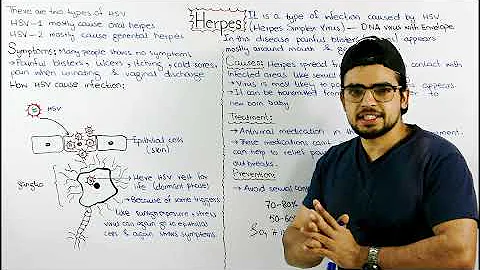 There are two types of HSV
HSV-1 mostly cause oral herpes
HSV-2 mostly cause genental herpes
Symptoms: Many people has no symptoms
→ Painful blisters, ulcers, itching, cold sores,
pain when urinating & vaginal discharge
How HSV cause infection:
HSV
Epithelial cells
(skin)
ganglia
Here HSV rest for
life (domant phase)
→ Because of some triggers
like surgery, sun exposure, stress
virus can again go to epithelial
cells & again shows symptoms.
Herpes
It is a type of infection caused by HSV
(Herpes Simplex Virus) — DNA virus with Envelope
In this disease painful blisters appears
mostly around mouth &
Causes: Herpes spread contact with
infected areas like sexual
→ Virus is most likely to pa appears.
→ It can be transmitted from to
new born baby.
Treatment:
→ Antiviral medication in th ment.
→ These medications can't
can help to relief pain
outbreaks.
Prevention:
→ Avoid sexual con
70-80%
50-60%